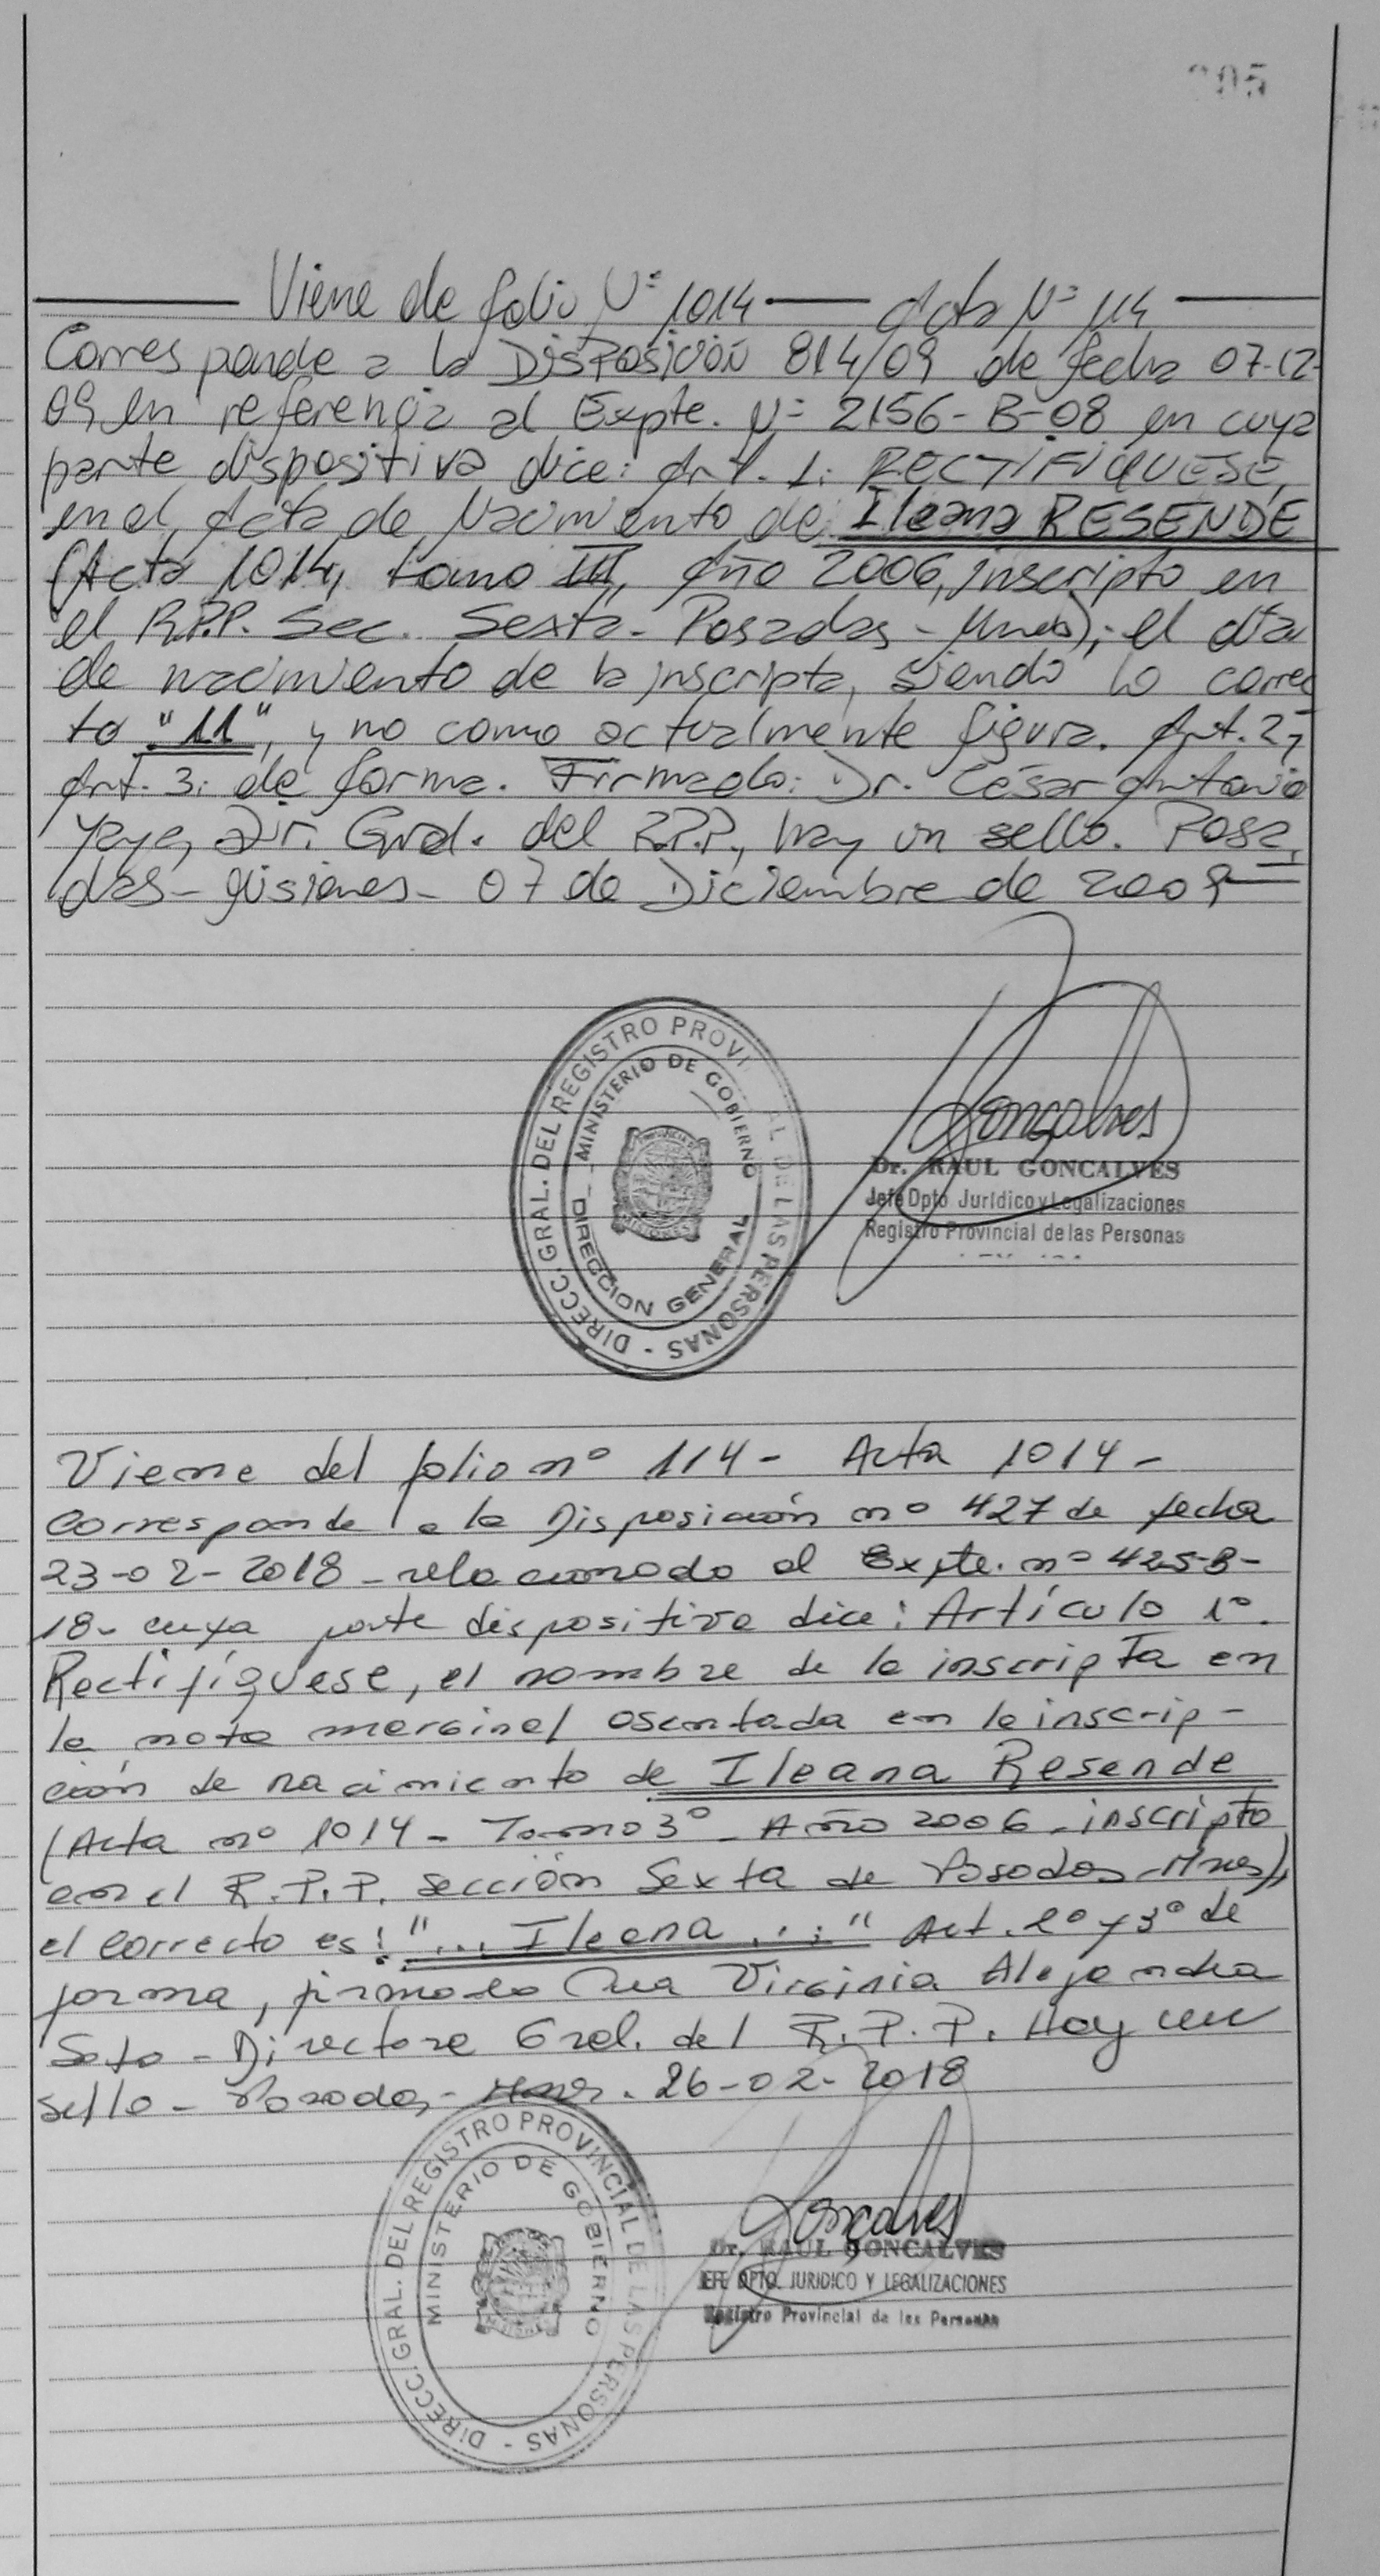 Viene de folio Nº 1014 — Acta Nº 114
Corresponde a la DISPOSICIÓN 814/09 de fecha 07-12-
09 en referencia al Expte. Nº 2156-B-08 en cuya
parte dispositiva dice: Art. 1: RECTIFIQUESE,
en el Acta de Nacimiento de Ileana RESENDE
(Acta 1014, tomo III, Año 2006, inscripto en
el R.P.P. Sec. Sexta - Posadas - Mnes); el día
de nacimiento de la inscripta, siendo lo correc
to "11", y no como actualmente figura. Art. 2,
Art. 3: de forma. Firmado: Dr. César Antonio
Yaya, Dir. Gral. del R.P.P., hay un sello. Posa
das - Misiones - 07 de Diciembre de 2009
DIRECC. GRAL. DEL REGISTRO PROVI AL DE LAS PERSONAS -
MINISTERIO DE GOBIERNO
DIRECCION GENERAL
MISIONES
Goncalves
Dr. RAUL GONCALVES
Jefe Dpto Jurídico y Legalizaciones
Registro Provincial de las Personas
Viene del folio nº 114 - Acta 1014 -
corresponde a la Disposición nº 427 de fecha
23-02-2018 - relacionado al Expte. nº 425-B-
18- cuya parte dispositiva dice: Artículo 1º.
Rectifíquese, el nombre de la inscripta en
la nota marginal asentada en la inscrip-
ción de nacimiento de Ileana Resende
(Acta nº 1014 - Tomo 3º - Año 2006 - inscripto
en el R.P.P. sección Sexta de Posadas - Mnes),
el correcto es: "... Ileana ..." Art. 2º y 3º de
forma, firmado Virginia Alejandra
Soto - Directora Gral. del R.P.P. Hay un
sello - Posadas - Mnes. 26-02-2018
DIRECC. GRAL. DEL REGISTRO PROVINCIAL DE LAS PERSONAS -
MINISTERIO DE GOBIERNO
Goncalves
Dr. RAUL GONCALVES
JEFE DPTO. JURIDICO Y LEGALIZACIONES
Registro Provincial de las Personas